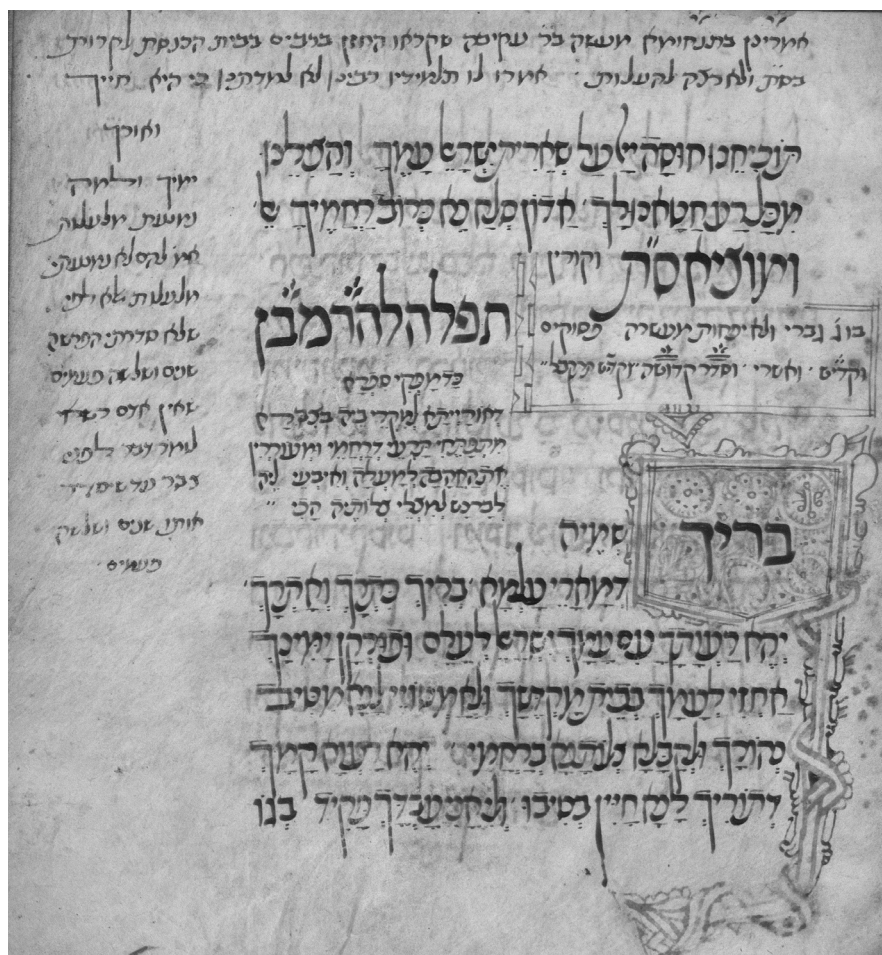 אמרינן בתנחומא מעשה בר עקיבה שקראו החזן ברבים בבית הכנסת לקרות
בס״ת ולא רצה לעלות אמרו לו תלמידיו רבינו לא למדתנו כי היא חייך
ואורך
ימיך ולמה
נמנעת מלעלות
אמ׳ להם לא נמנעתי
מלעלות אלא לפי
שלא סדרתי הפרשה
שנים ושלשה פעמים
שאין אדם רשאי
לומר דבר לפני
עד שיסדיר
אותו שנים ושלשה
פעמים
תוכיחנו חוסה ייי על שארית ישראל עמך והעלינו
מכל רע חטאנו לך אדון סלח נא כרוב רחמיך
ומוציא ס״ת וקורין
בו ג׳ גברי ולא פחות מעשרה פסוקים
וקדיש ואשרי וסדר קדושה וקדיש תתקבל
תפלה להרמב״ן
כדמפקי ספרא
דאוריתא למקרי ביה בצבורא
מתפתחי תרעי דרחמי ומעוררין
את האהבה למעלה ואיבעי ליה
לבר נש למצלי צלותיה הכי
בריך
שמיה
דמארי עלמא בריך כתרך ואתרך
יהא רעותך עם עמך ישראל לעלם ופורקן ימינך
אחזי לעמך בבית מקדשך ולאמטויי לנא מטיב
נהורך ולקבלא צלותנא ברחמין יהא רעוא קמך
דתוריך לנא חיין בטיבו ולהוי אנא עבדך פקיד בגו